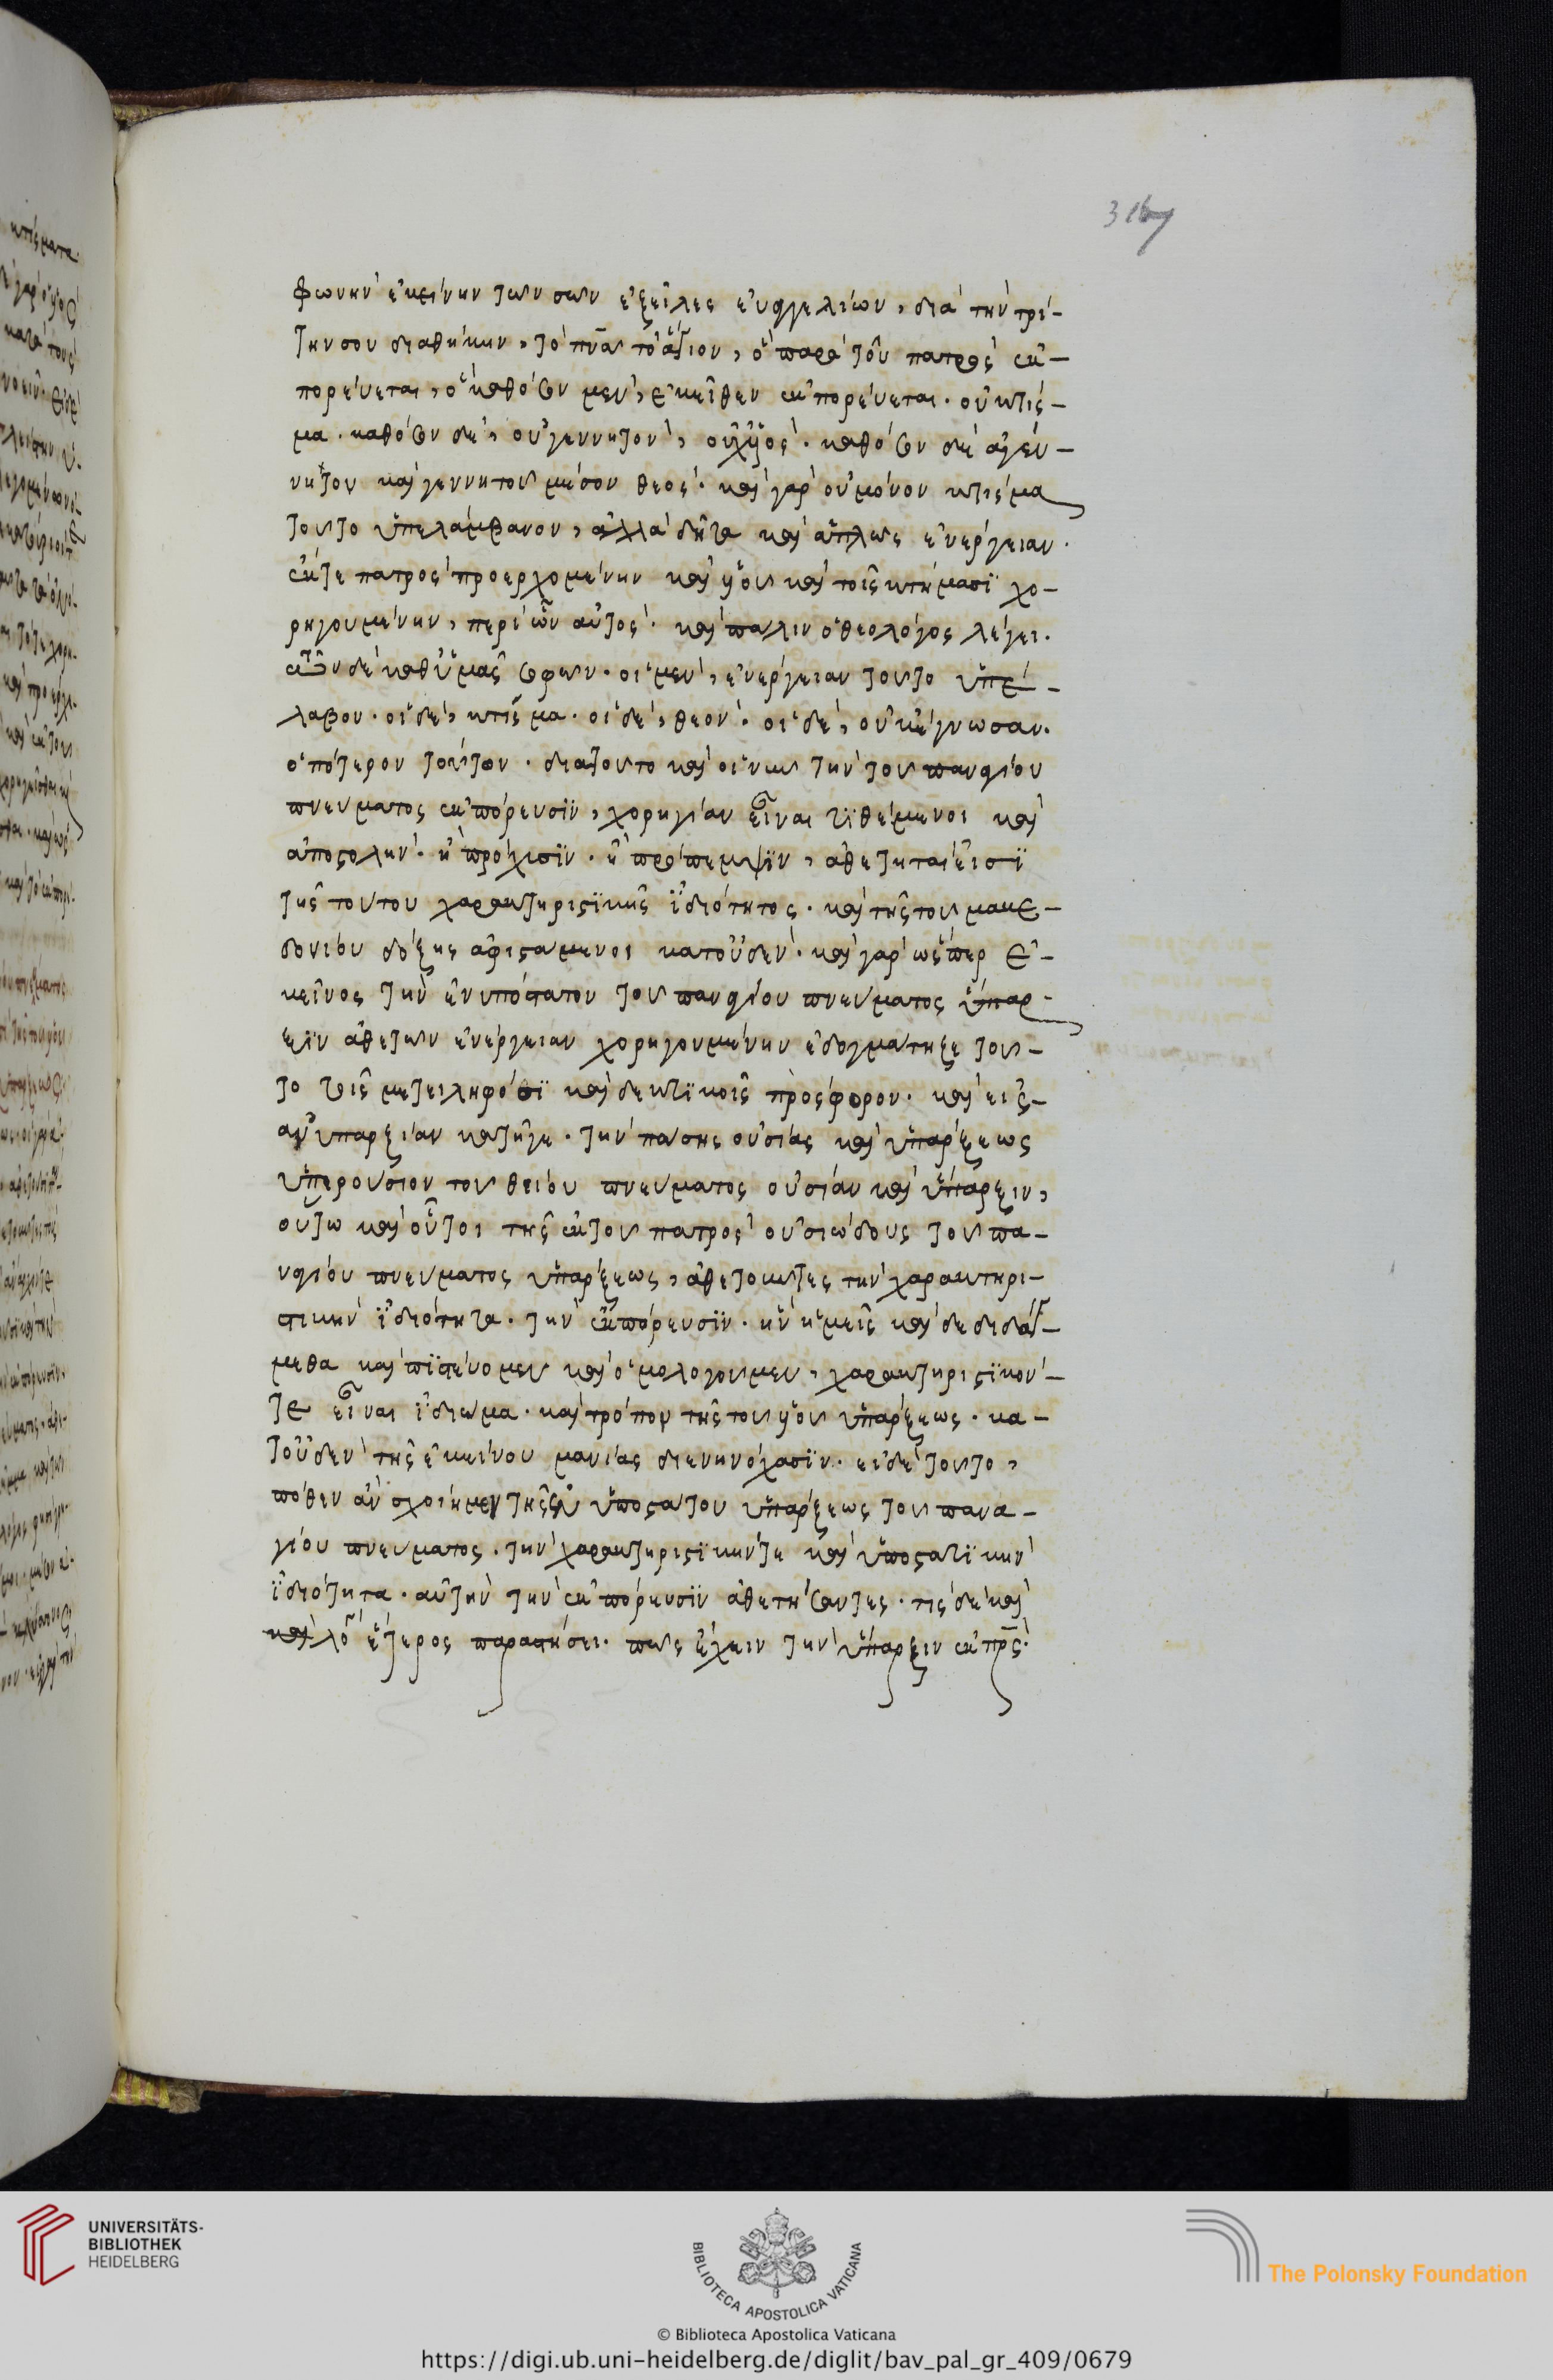 316
φωνὴν ἐκείνην τῶν σῶν ἐξεῖλες εὐαγγελίων, διὰ τὴν τρί-
την σου διαθήκην, τὸ πνα τὸ ἅγιον, ὃ παρὰ τοῦ πατρὸς ἐκ-
πορεύεται, ὃ καθόσον μὲν, ἐκεῖθεν ἐκπορεύεται. οὐ κτίσ-
μα. καθόσον δὲ, οὐ γεννητὸν, οὐχ υἱὸς. καθόσον δὲ ἀγεν-
νήτου καὶ γεννητοῦ μέσον θεὸς. καὶ γὰρ οὐ μόνον κτίσμα
τοῦτο ὑπελάμβανον, ἀλλὰ δῆτα καὶ ἁπλῶς ἐνέργειαν.
ἔκ τε πατρὸς προερχομένην καὶ υἱοῦ καὶ τοῖς κτήμασϊ χο-
ρηγουμένην, περὶ ὧν αὐτὸς. καὶ πάλιν ὁ θεολόγος λέγει.
τῶν δὲ καθ ὑμᾶς σοφῶν. οἱ μὲν, ἐνέργειαν τοῦτο ὑπέ-
λαβον. οἱ δὲ, κτίσμα. οἱ δὲ, θεὸν. οἱ δὲ, οὐκ ἔγνωσαν.
ὁπότερον τούτων. διατοῦτο καὶ οἱ νῦν τὴν τοῦ παναγίου
πνεύματος ἐκπόρευσϊν, χορηγίαν εἶναι τϊθέμενοι καὶ
ἀποστολὴν. ἢ πρόχυσϊν. ἢ πρόπεμψϊν, ἀθετηταί εἰσϊ
τῆς τούτου χαρακτηριστϊκῆς ἰδιότητος. καὶ τῆς τοῦ μακε-
δονίου δόξης ἀφιστάμενοι κατοὐδὲν. καὶ γὰρ ὥσπερ ἐ-
κεῖνος τὴν ἐνυπόστατον τοῦ παναγίου πνεύματος ὕπαρ-
ξϊν ἀθετῶν ἐνέργειαν χορηγουμένην ἐδογμάτηξε τοῦ-
το τοῖς μετειληφόσϊ καὶ δεκτϊκοῖς πρόσφορον. καὶ εἰς
ἀνυπαρξίαν κατῆγε. τὴν πάσης οὐσίας καὶ ὑπάρξεως
ὑπερούσιον τοῦ θείου πνεύματος οὐσίαν καὶ ὕπαρξιν,
οὕτω καὶ οὗτοι τῆς ἐκ τοῦ πατρὸς οὐσιώδους τοῦ πα-
ναγίου πνεύματος ὑπάρξεως, ἀθετοῦντες τὴν χαρακτηρι-
στικὴν ἰδιότητα. τὴν ἐκπόρευσϊν. ἣν ἡμεῖς καὶ δεδιδάγ-
μεθα καὶ πϊστεύομεν καὶ ὁμολογοῦμεν, χαρακτηριστϊκόν-
τε εἶναι ἰδίωμα. καὶ τρόπον τῆς τοῦ υἱοῦ ὑπάρξεως. κα-
τοὐδὲν τῆς ἐκείνου μανίας διενηνόχασϊν. εἰ δὲ τοῦτο,
πόθεν ἂν σχοίημεν τῆς ἐνυποστάτου ὑπάρξεως τοῦ πανα-
γίου πνεύματος. τὴν χαρακτηριστϊκήν τε καὶ ὑποστατϊκὴν
ἰδιότητα. αὐτὴν τὴν ἐκπόρευσϊν ἀθετήσαντες. τίς δὲ καὶ
λό ἕτερος παραστήσει. πῶς ἔχειν τὴν ὕπαρξιν ἐκ πρς.
UNIVERSITÄTS-
BIBLIOTHEK
HEIDELBERG
BIBLIOTECA APOSTOLICA VATICANA
The Polonsky Foundation
© Biblioteca Apostolica Vaticana
https://digi.ub.uni-heidelberg.de/diglit/bav_pal_gr_409/0679